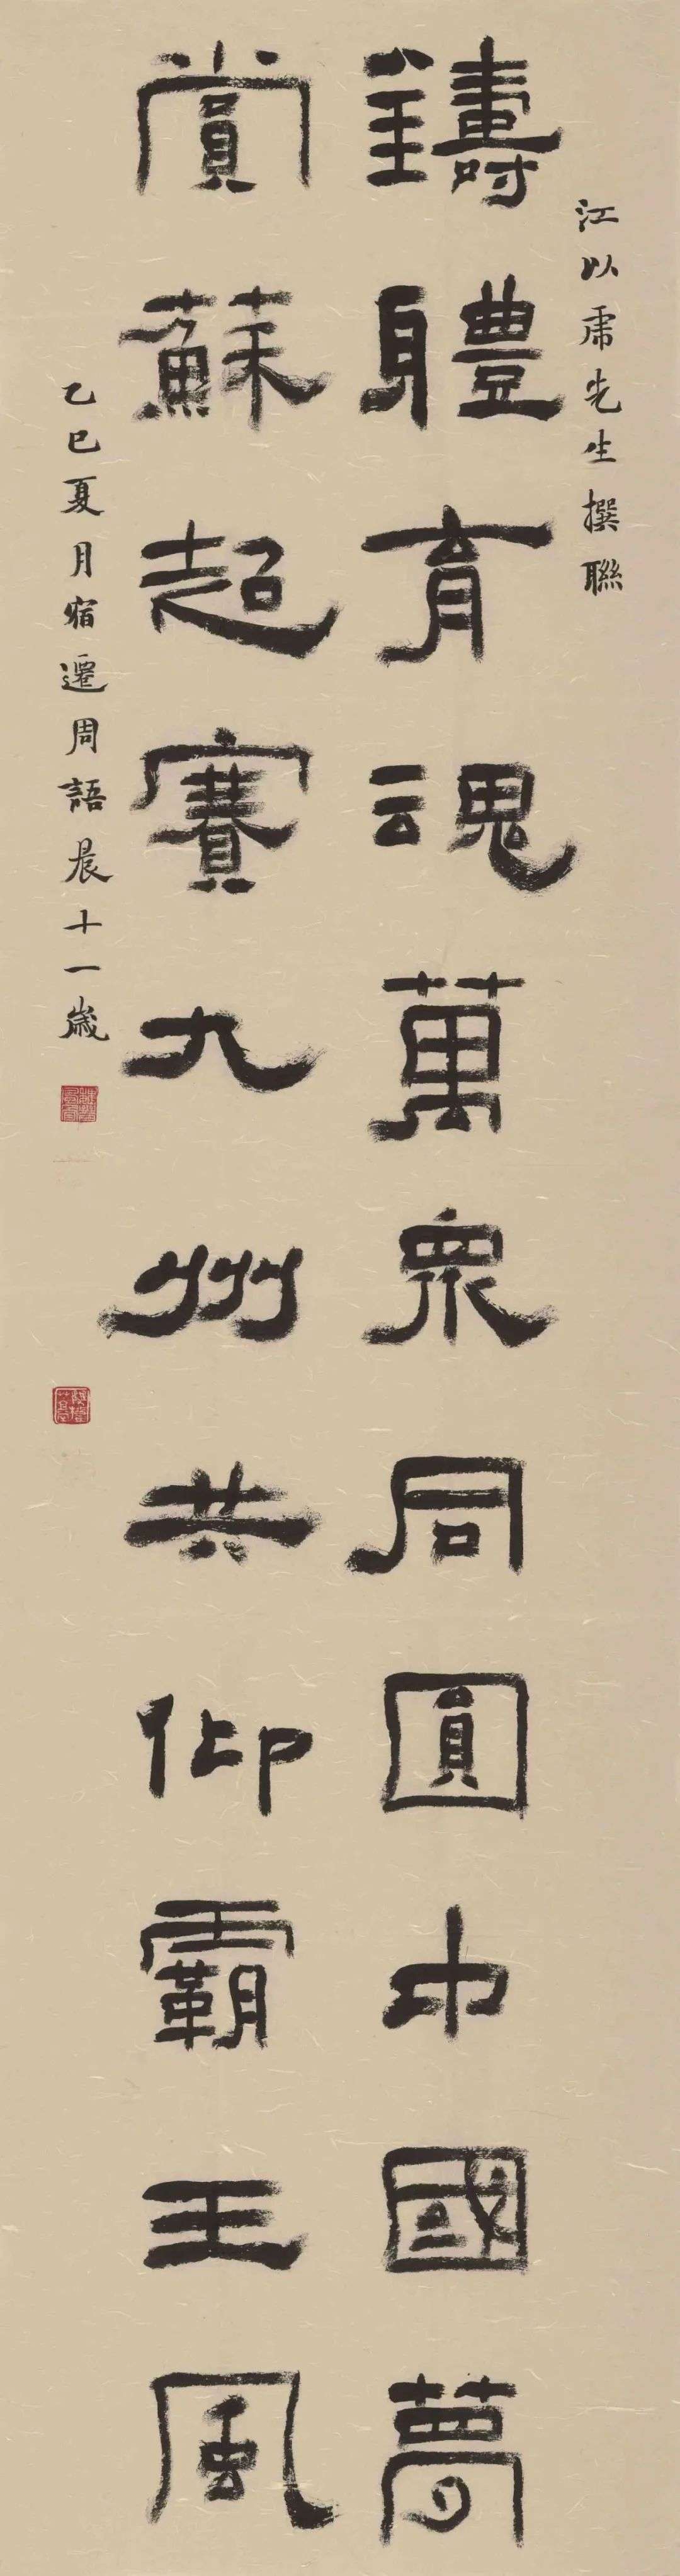 江以虎先生撰聯
鑄軆育魂萬衆同圓中國夢
賞蘇超賽九州共仰霸王風
乙巳夏月宿遷周語晨十一歲